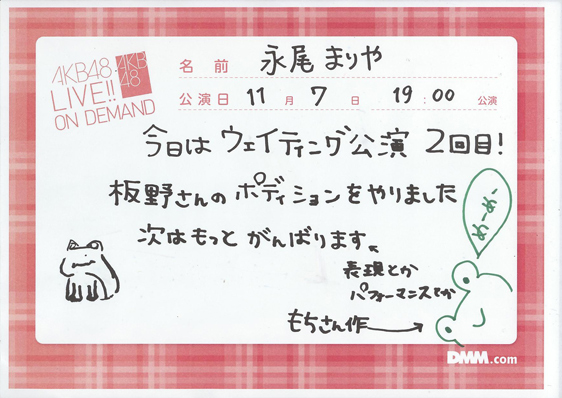 AKB48
AKB
48
LIVE!!
ON DEMAND
名前 永尾まりや
公演日 11月7日 19:00 公演
今日は ウェイティング公演 2回目!
板野さんの ポディションをやりました
次はもっと がんばります。
表現とか
パフォーマンスとか
めーめー、
もちさん作
DMM.com